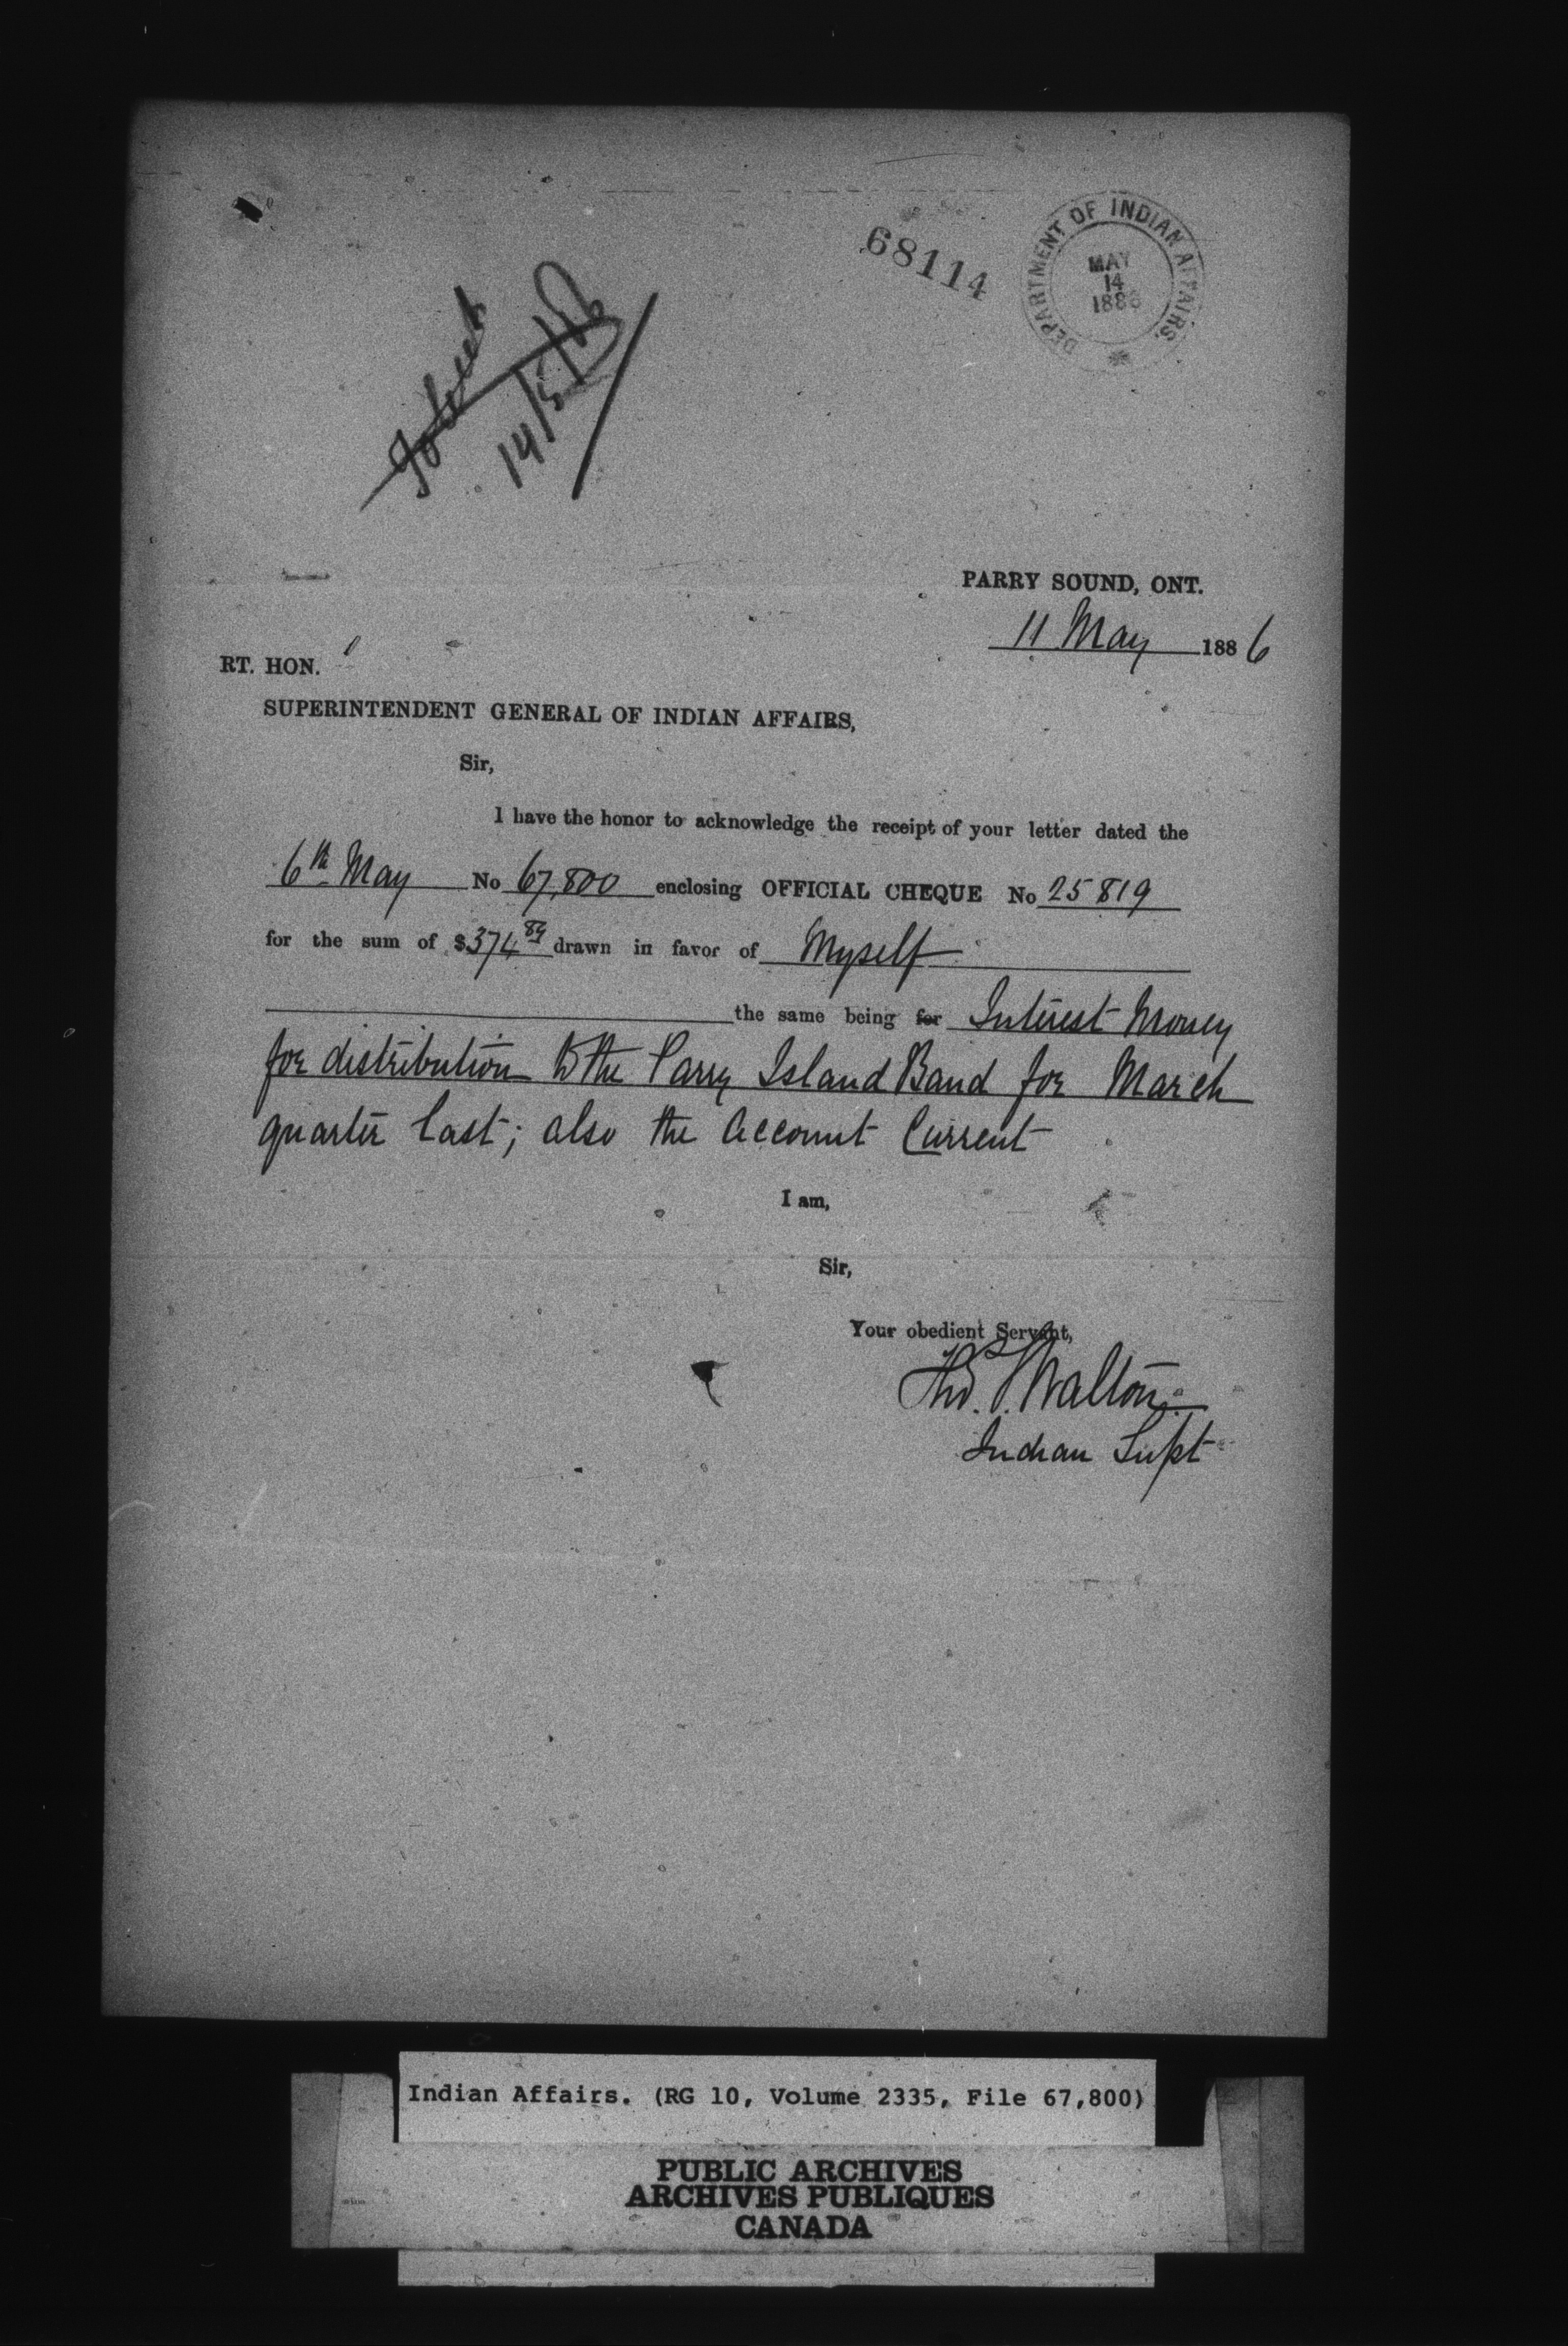 68114
DEPARTMENT OF INDIAN AFFAIRS.
MAY
14
1886
14/5/86
PARRY SOUND, ONT.
11 May 1886
RT. HON.
SUPERINTENDENT GENERAL OF INDIAN AFFAIRS,
Sir,
I have the honor to acknowledge the receipt of your letter dated the
6th May No 67,800 enclosing OFFICIAL CHEQUE No 25819
for the sum of $374 89 drawn in favor of Myself
the same being for Interest Money
for distribution to the Parry Island Band for March
quarter last; also the Account Current
I am,
Sir,
Your obedient Servant,
Thos. S. Walton
Indian Supt
Indian Affairs. (RG 10, Volume 2335, File 67,800)
PUBLIC ARCHIVES
ARCHIVES PUBLIQUES
CANADA